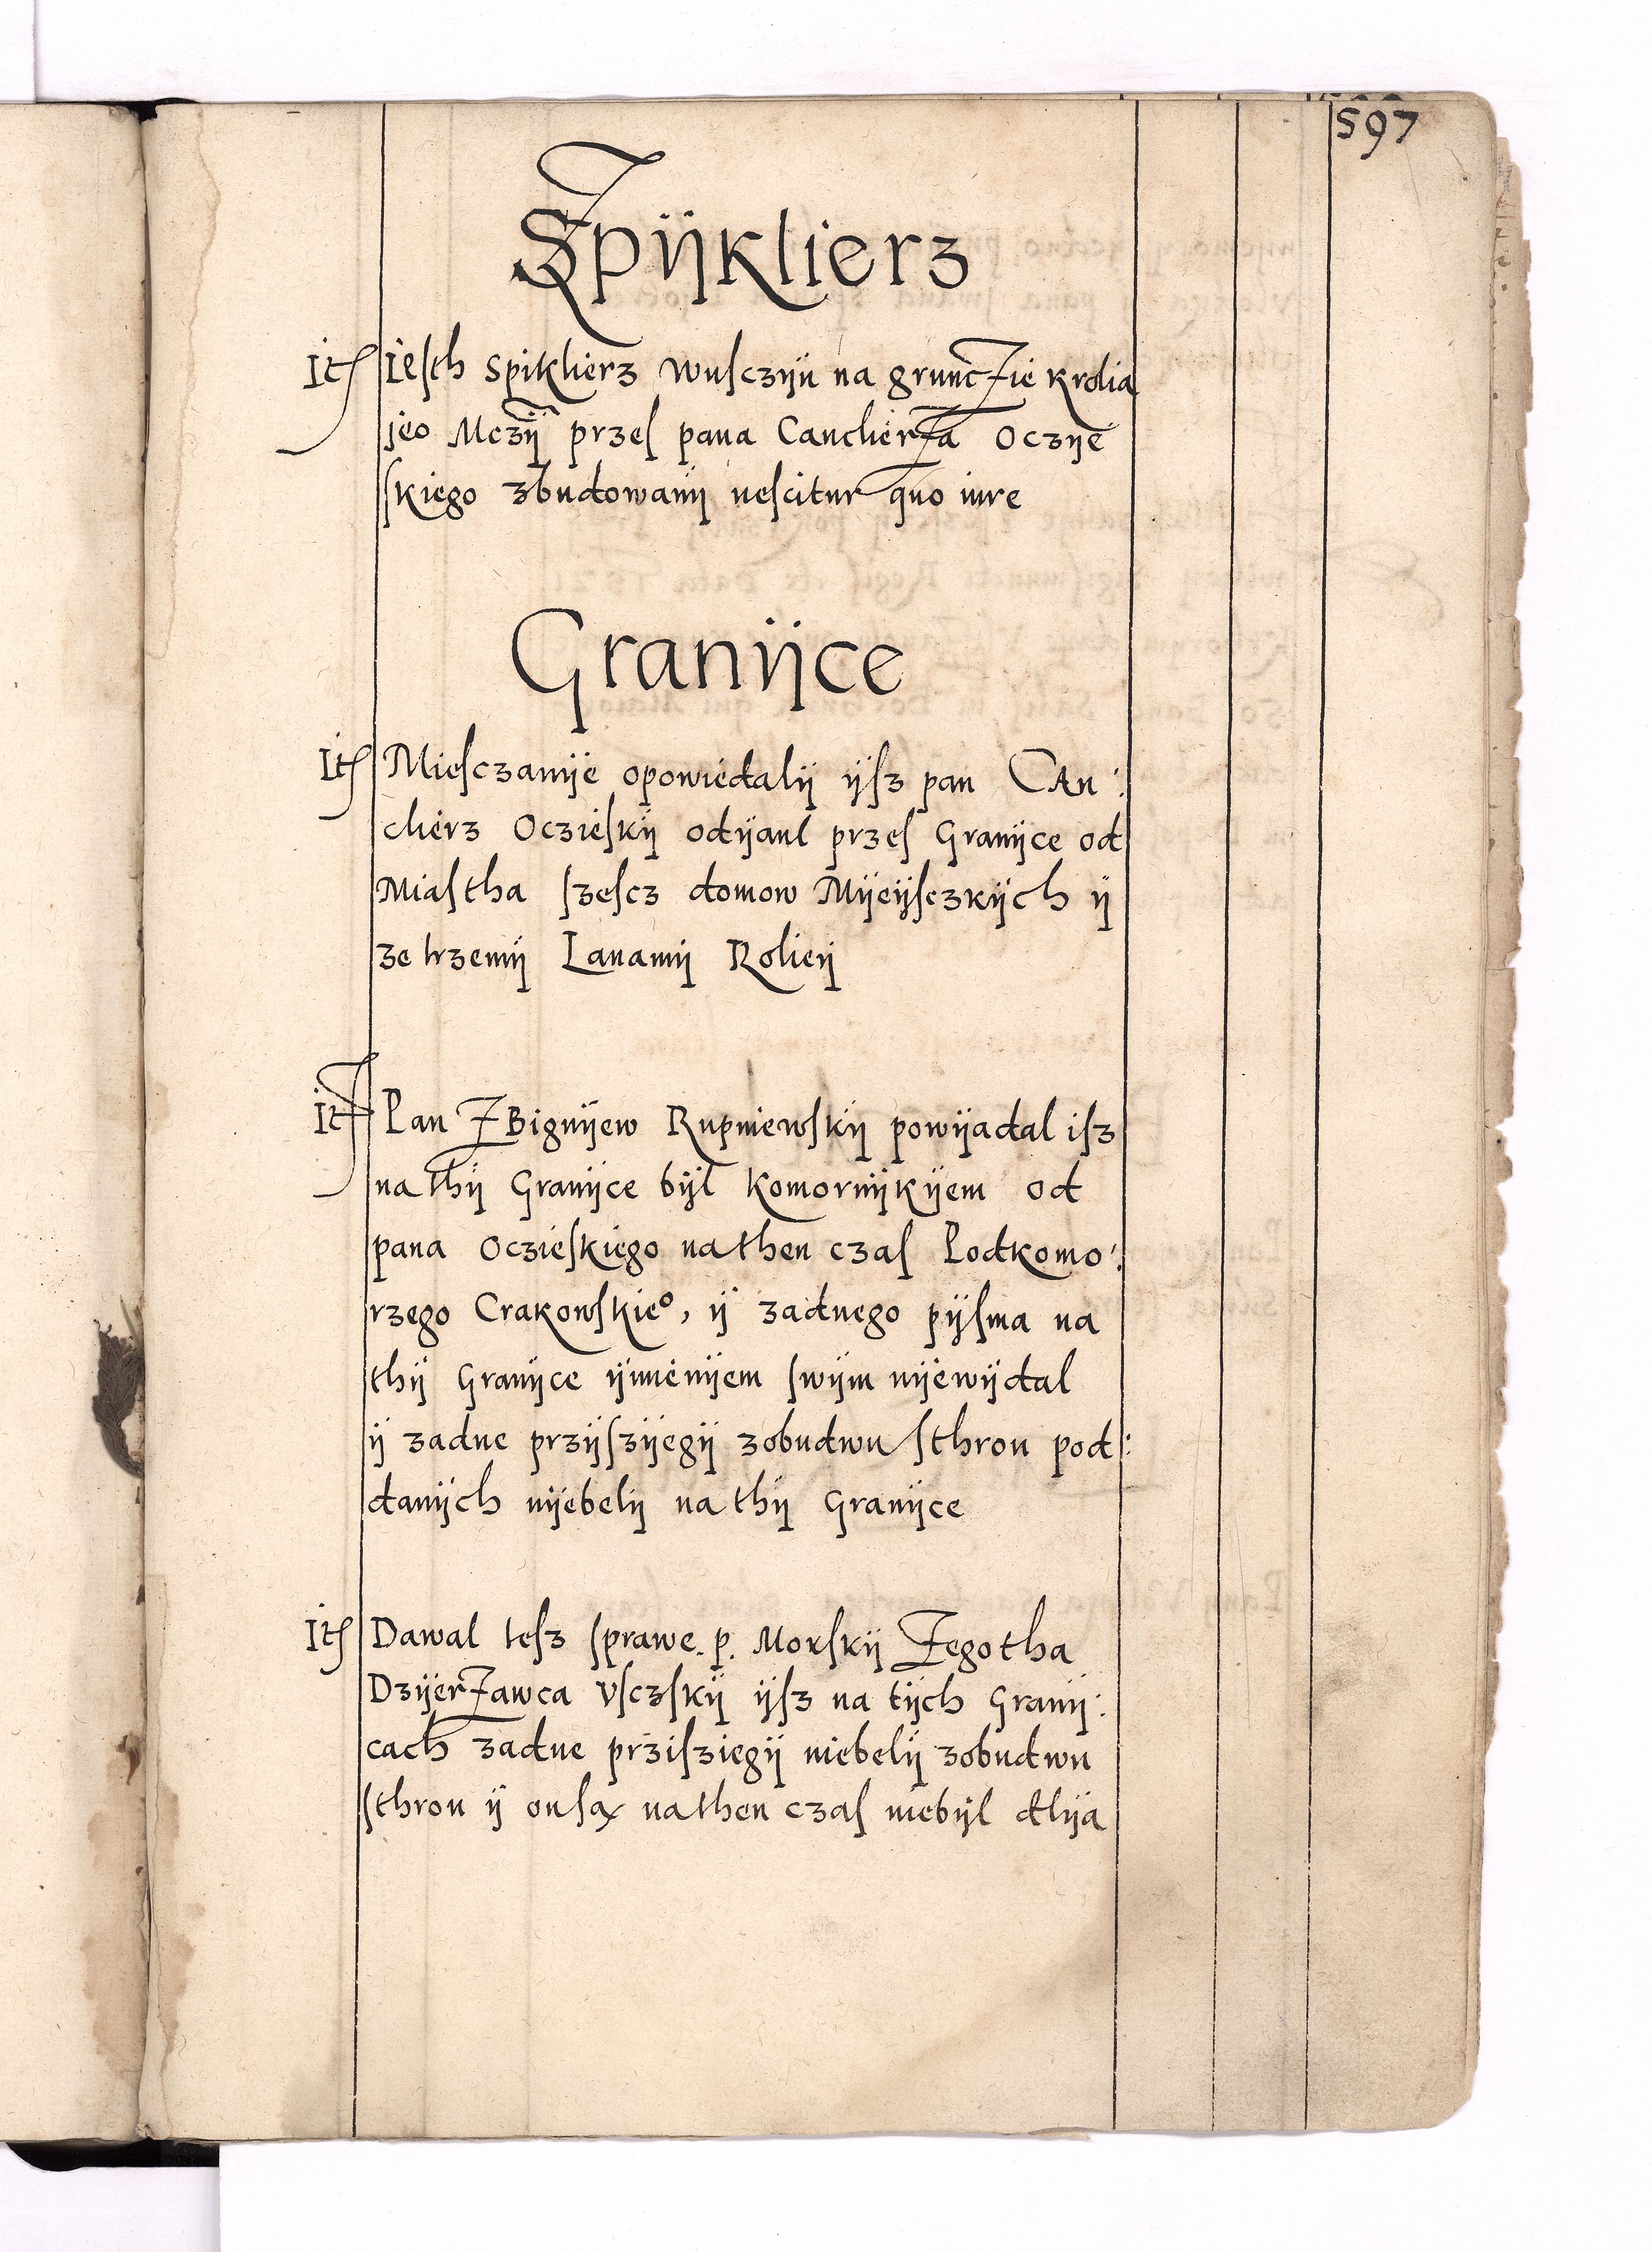 597
Spÿklierz
Itē Iesth spiklierz wusczÿu na gruncZie Krolia
jeo Mczÿ przes pana CanclierZa Oczÿe
skiego zbudowanÿ nescitur quo iure
Granÿce
Itē Miesczanÿe opowiedalÿ ÿsz pan CAn:
clierz Oczieskÿ odÿanl przes Granÿce od
Miastha szescz domow Mÿeÿsczkÿch ÿ
ze trzemÿ Lanamÿ Rolieÿ
Itē Pan ZBignÿew Rupniewskÿ powÿadal isz
na thÿ Granÿce bÿl Komornÿkÿem od
pana Oczieskiego na then czas Podkomo:
rzego Crakowskieo, ÿ zadnego pÿsma na
thÿ Granÿce ÿmienÿem swÿm nÿewÿdal
ÿ zadne przÿszÿegÿ zobudwu sthron pod:
danÿch nÿebelÿ na thÿ Granÿce
Itē Dawal tesz sprawe .p. Morskÿ Zegotha
DzÿerZawca Vsczskÿ ÿsz na tÿch Granÿ:
cach zadne przisziegÿ niebelÿ zobudwu
sthron ÿ onsąz na then czas niebÿl dlÿa